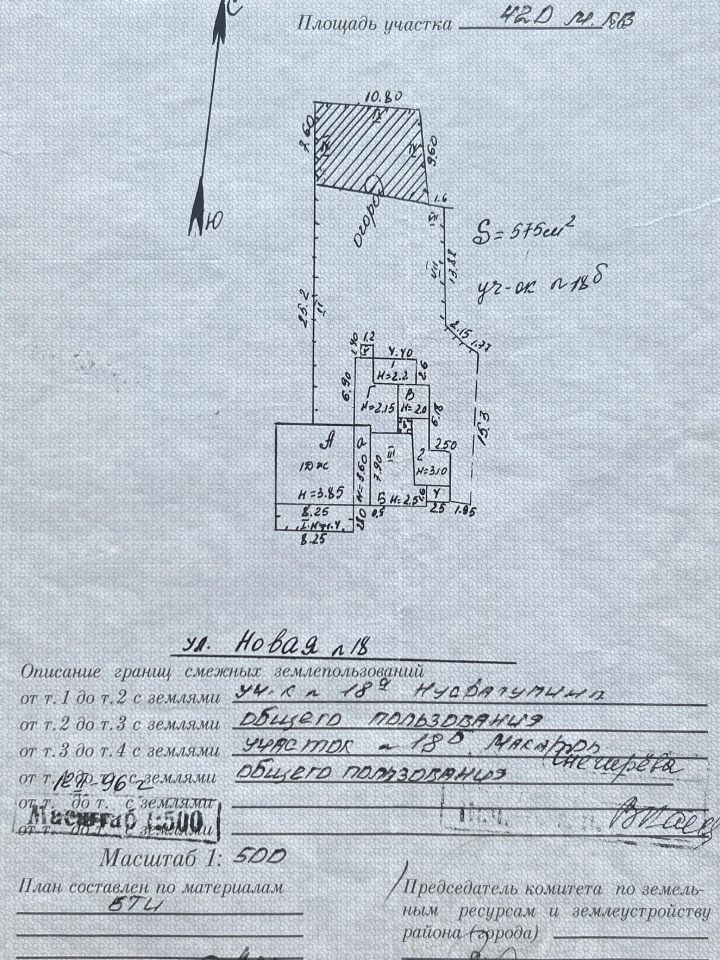 С
Площадь участка 420 м. кв
10.80
IV
7.60
IV
IV
9.60
1.6
Ю
огород
VII
S = 575 м²
VII
13.88
уч-ок №18б
25.2
II
2.15 1.77
1.2
1.90
4.40
1
Н=2.2
2.6
6.90
В
Н=2.15
Н=2.0
6.18
15.3
А
а
2.50
III
7.90
2
1Дж
Н=3.10
Н=3.85
Н=2.60
4
8.25
Б Н=2.5
0.5
2.5
1.85
2.80
8.25
ул. Новая №18
Описание границ смежных землепользований
от т.1 до т.2 с землями уч-к № 18а
от т.2 до т.3 с землями общего пользования
от т.3 до т.4 с землями участок № 18б
от т. до т. с землями общего пользования
от т. до т. с землями
Масштаб 1:500
от т. до т. с землями
Масштаб 1: 500
План составлен по материалам
БТИ
Председатель комитета по земель-
ным ресурсам и землеустройству
района (города)